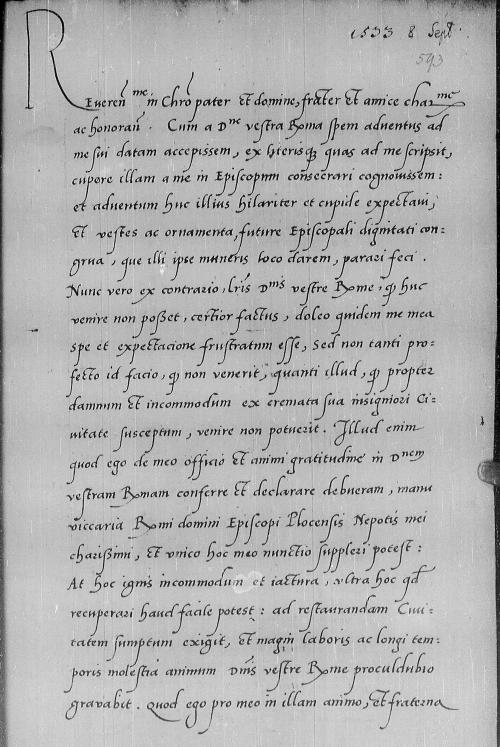 1533 8 Sept.
593
Reveren^me in Chro pater et domine, frater et amice char^me
ac honoran. Cum a D^ne vestra Roma spem adventus ad
me sui datam accepissem, ex literisq quas ad me scripsit,
cupere illam a me in Episcopum consecrari cognovissem:
et adventum huc illius hilariter et cupide expectavi,
Et vestes ac ornamenta, future Episcopali dignitati con=
grua, que illi ipse muneris loco darem, parari feci.
Nunc vero ex contrario, lris D^nis vestre Rome, q huc
venire non posset, certior factus, doleo quidem me mea
spe et expectacione frustratum esse, sed non tanti pro=
fecto id facio, q non venerit, quanti illud, q propter
damnum et incommodum ex cremata sua insigniori Ci=
vitate susceptum, venire non potuerit. Illud enim
quod ego de meo officio et animi gratitudine in D^nem
vestram Romam conferre et declarare debueram, manu
viccaria Romi domini Episcopi Plocensis Nepotis mei
charissimi, et unico hoc meo nunctio suppleri potest:
At hoc ignis incommodum et iactura, ultra hoc qd
recuperari haud facile potest: ad restaurandam Civi=
tatem sumptum exigit, et magni laboris ac longi tem=
poris molestia animum Dnis vestre Rome proculdubio
gravabit. Quod ego pro meo in illam animo, et fraterna